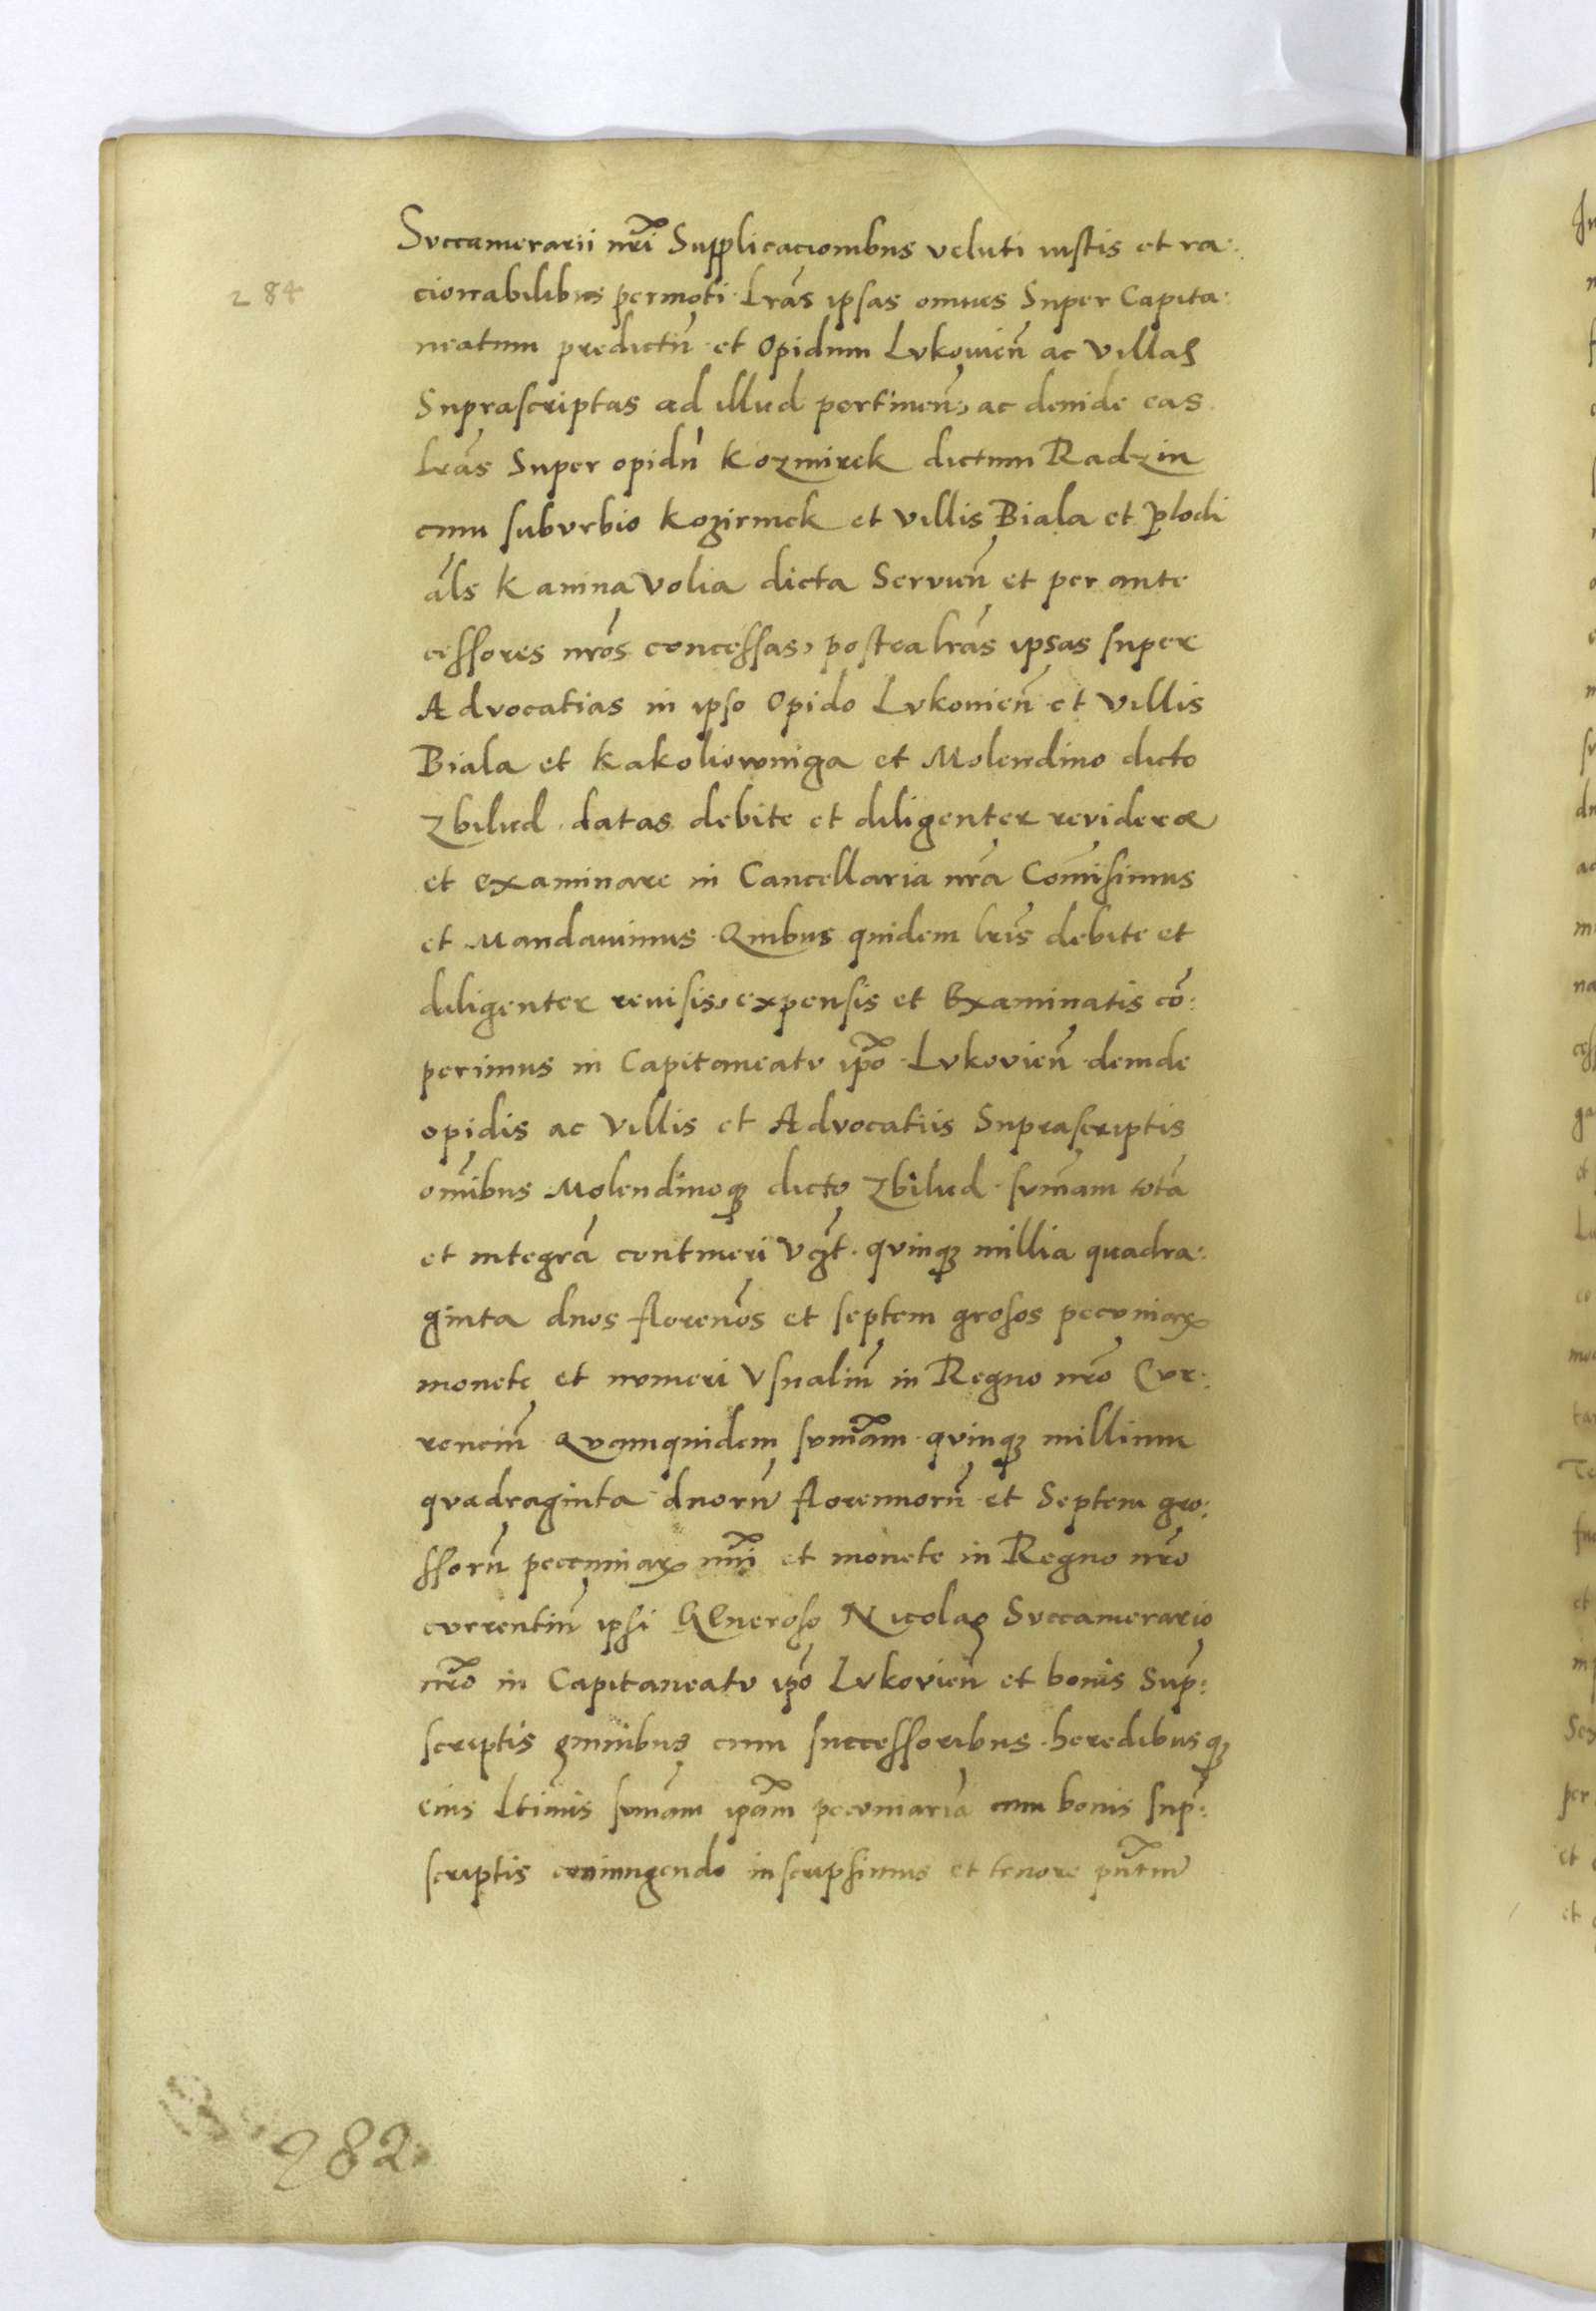 Svccamerarii nr̃i Supplicacionibus veluti iustis et ra:
284
cionabilibus permoti. Lr̃as ipsas omnes Super Capita:
neatum predictũ et Opidum Lvkovieñ ac villas
Suprascriptas ad illud pertineñ, ac deinde eas
lr̃as Super opidũ kozmirek dictum Radzin
cum subvrbio kozirmek et villis Biala et plodi
al̃s kanina volia dicta Servieñ et per ante
cessores nr̃os concessas, postea lr̃as ipsas super
Advocatias in ipso Opido Lvkonieñ et villis
Biala et kakoliowniga et Molendino dicto
Zbilud datas debite et diligenter reviderae
et examinare in Cancellaria nr̃a Com̃isimus
et Mandauimus. Quibus quidem lr̃is debite et
diligenter reuisis, expensis et Examinatis cõ:
perimus in Capitaneatv ip̃o Lvkovieñ deinde
opidis ac villis et Advocatiis Suprascriptis
om̃ibus Molendinoqȝ dicto Zbilud. svm̃am totã
et integrã contineri vcʒt. qvinqȝ millia quadra:
ginta duos floren̄os et septem grosos pecvniarꝝ
monete et nvmeri vsualiũ in Regno nr̃o Cvr:
renciũ Qvamquidem svm̃am qvinqȝ millium
qvadraginta duorũ florenorũ et Septem gro:
ssorũ pecuniarꝝ nr̃i et monete in Regno nr̃o
cvrrentiũ ipsi GEneroso Nicolao Svccamerario
nr̃o in Capitaneatv ip̃o Lvkovieñ et bonis Sup̃:
scriptis omnibus cum successoribus heredibusqȝ
eius Ltĩmis svm̃am ip̃am pecvniariã cum bonis sup̃:
scriptis coniungendo inscripsimus et tenore pñtiũ
282